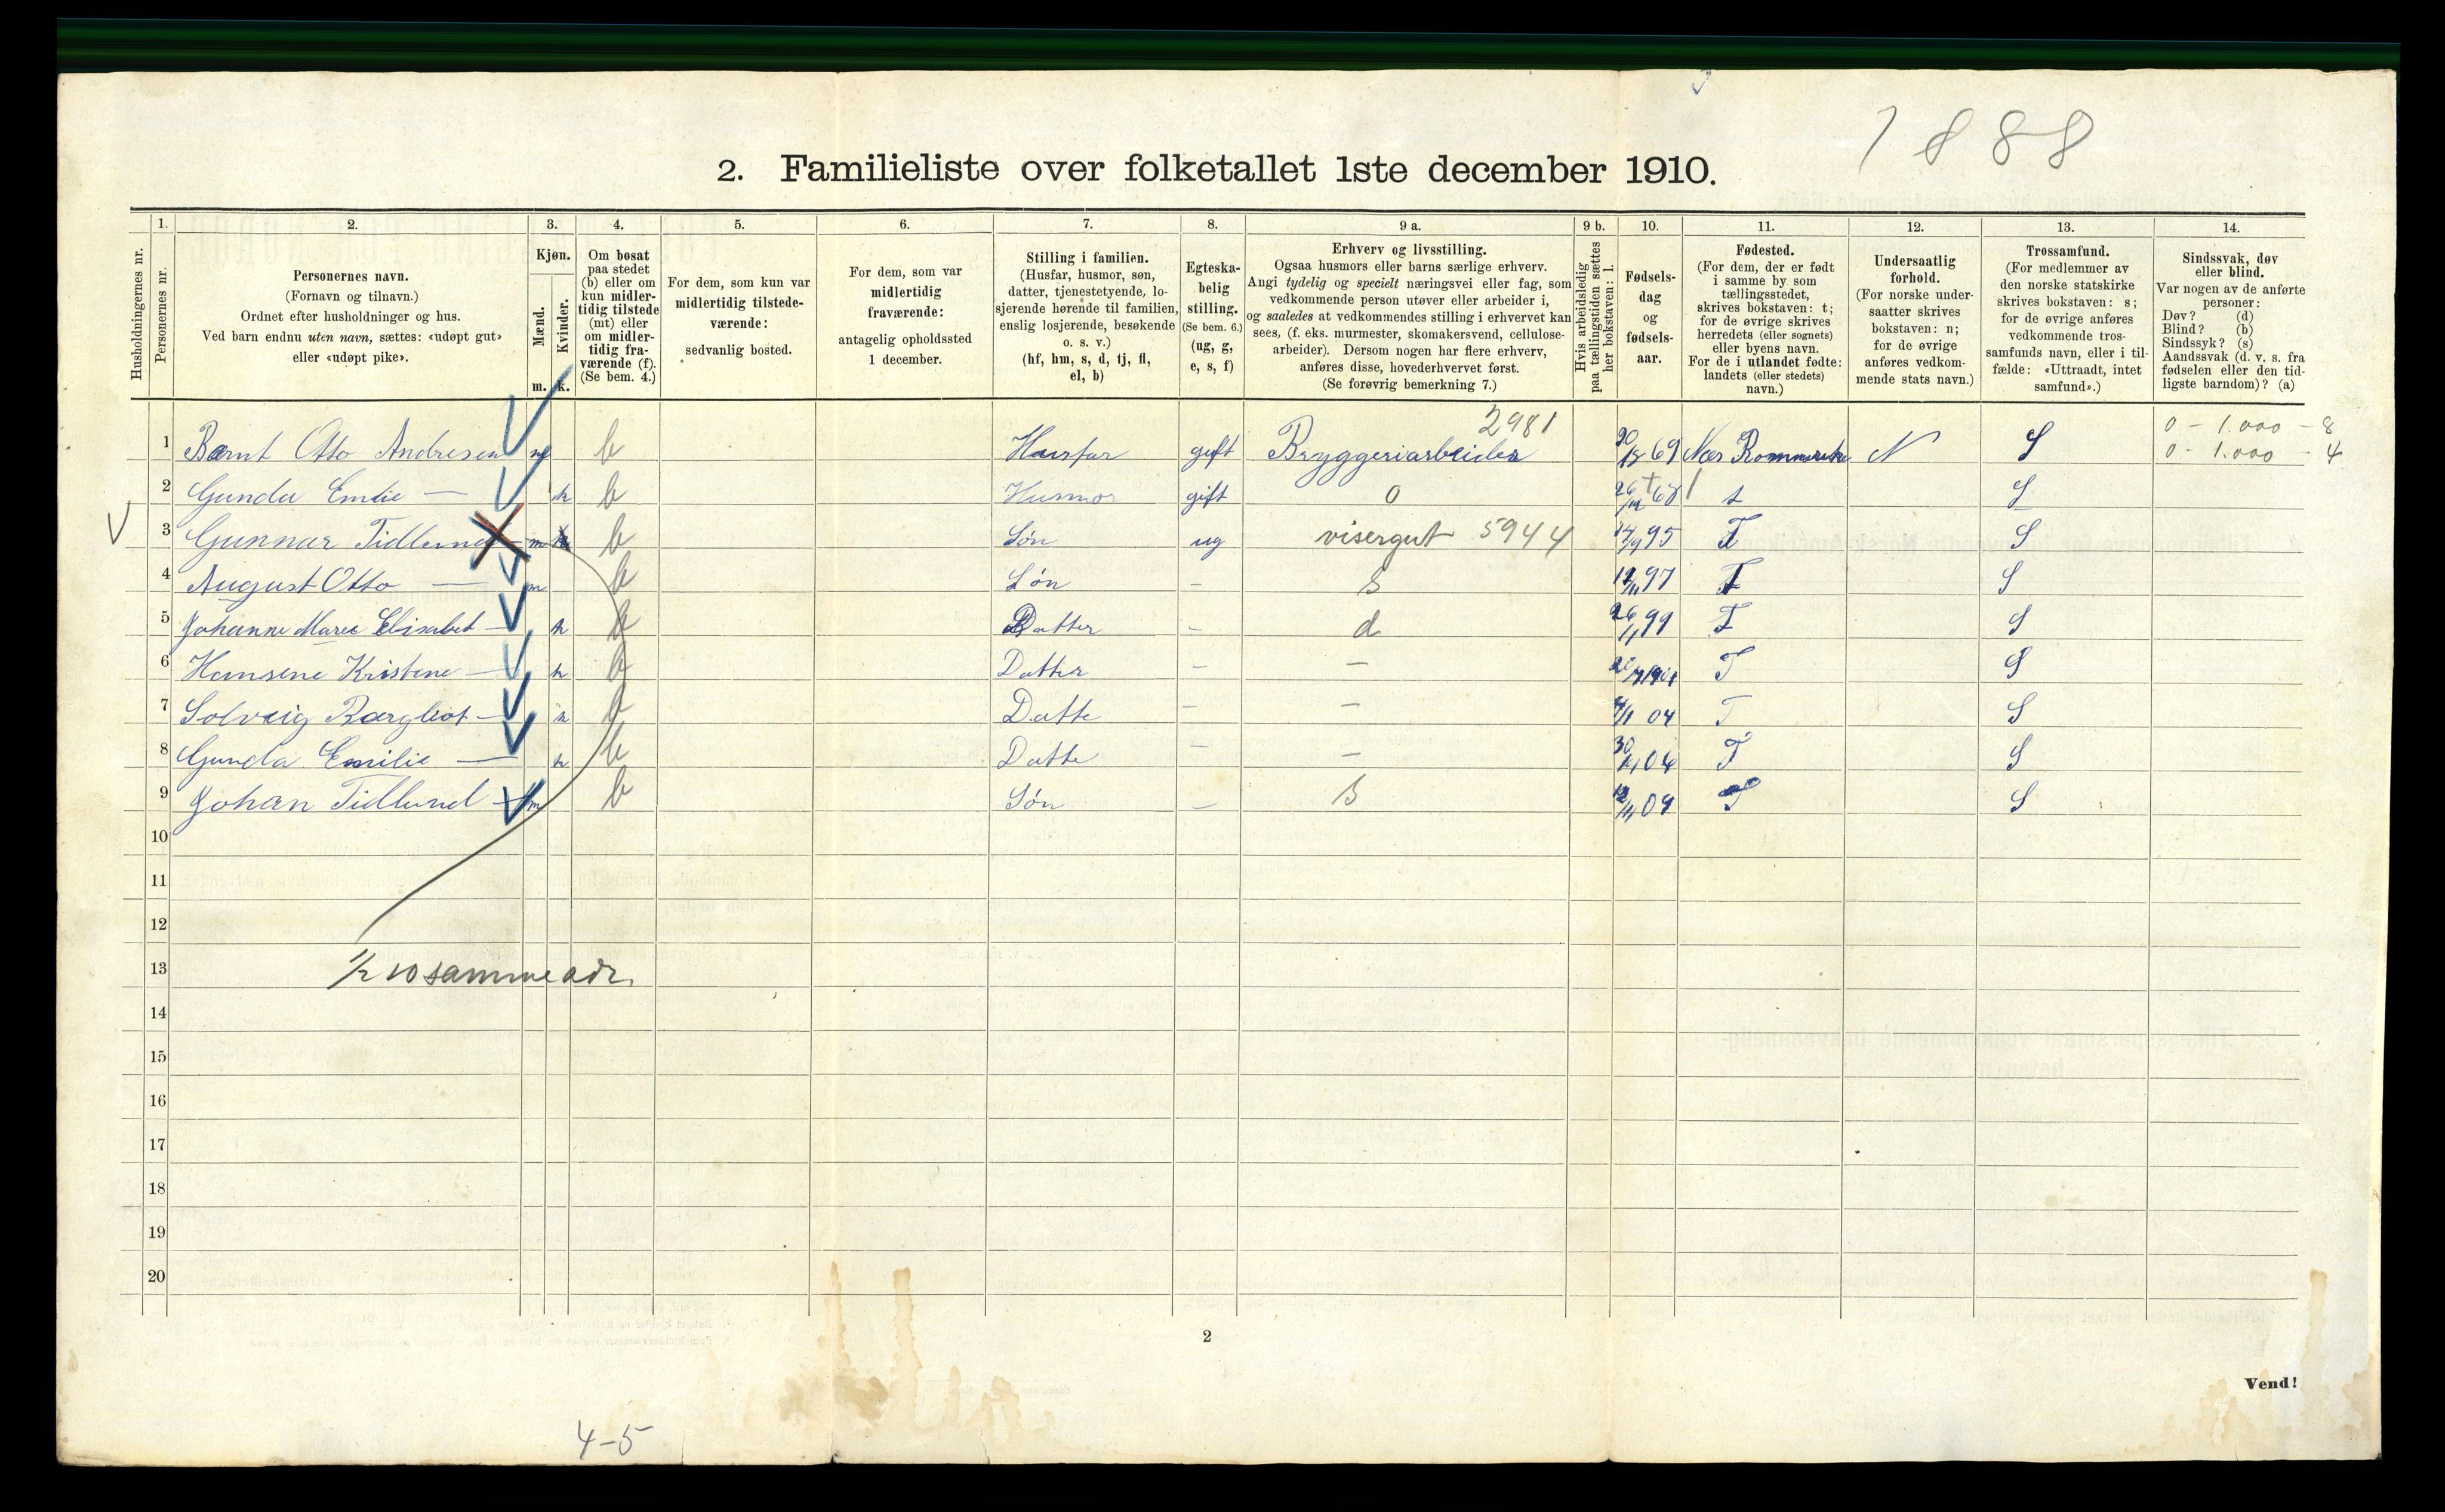 1888
2. Familieliste over folketallet 1ste december 1910.
1. 2. 3. 4. 5. 6. 7. 8. 9 a. 9 b. 10. 11. 12. 13. 14.
Husholdningernes nr.
Personernes nr.
Personernes navn.
(Fornavn og tilnavn.)
Ordnet efter husholdninger og hus.
Ved barn endnu uten navn, sættes: «udøpt gut»
eller «udøpt pike».
Kjøn.
Mænd.
Kvinder.
m. k.
Om bosat
paa stedet
(b) eller om
kun midler-
tidig tilstede
(mt) eller
om midler-
tidig fra-
værende (f).
(Se bem. 4.)
For dem, som kun var
midlertidig tilstede-
værende:
sedvanlig bosted.
For dem, som var
midlertidig
fraværende:
antagelig opholdssted
1 december.
Stilling i familien.
(Husfar, husmor, søn,
datter, tjenestetyende, lo-
sjerende hørende til familien,
enslig losjerende, besøkende
o. s. v.)
(hf, hm, s, d, tj, fl,
el, b)
Egteska-
belig
stilling.
(Se bem. 6.)
(ug, g,
e, s, f)
Erhverv og livsstilling.
Ogsaa husmors eller barns særlige erhverv.
Angi tydelig og specielt næringsvei eller fag, som
vedkommende person utøver eller arbeider i,
og saaledes at vedkommendes stilling i erhvervet kan
sees, (f. eks. murmester, skomakersvend, cellulose-
arbeider). Dersom nogen har flere erhverv,
anføres disse, hovederhvervet først.
(Se forøvrig bemerkning 7.)
Hvis arbeidsledig
paa tællingstiden sættes
her bokstaven: l.
Fødsels-
dag
og
fødsels-
aar.
Fødested.
(For dem, der er født
i samme by som
tællingsstedet,
skrives bokstaven: t;
for de øvrige skrives
herredets (eller sognets)
eller byens navn.
For de i utlandet fødte:
landets (eller stedets)
navn.)
Undersaatlig
forhold.
(For norske under-
saatter skrives
bokstaven: n;
for de øvrige
anføres vedkom-
mende stats navn.)
Trossamfund.
(For medlemmer av
den norske statskirke
skrives bokstaven: s;
for de øvrige anføres
vedkommende tros-
samfunds navn, eller i til-
fælde: «Uttraadt, intet
samfund».)
Sindssvak, døv
eller blind.
Var nogen av de anførte
personer:
Døv? (d)
Blind? (b)
Sindssyk? (s)
Aandssvak (d. v. s. fra
fødselen eller den tid-
ligste barndom)? (a)
2981
0 - 1.000 - 8
0 - 1.000 - 4
1 Bernt Otto Andresen m b Husfar gift Bryggeriarbeider 69 Nes Romerike N S
2 Gunda Emilie — k b Husmor gift 0 t S
3 Gunnar m b Søn ug visergut 5944 95 T S
4 August Otto — m b Søn - s 97 T S
5 Johanne Marie Elisabet — k b Datter - d 99 T S
6 Hansene Kristene — k b Datter — — T S
7 Solveig Bergliot — k b Datte — — 04 T S
8 Gunda Emilie — k b Datte — — T S
9 Johan Tidlund — m b Søn — s 09 T S
10
11
12
13 1/2 10 samme adr.
14
15
16
17
18
19
20
2
Vend!
4-5